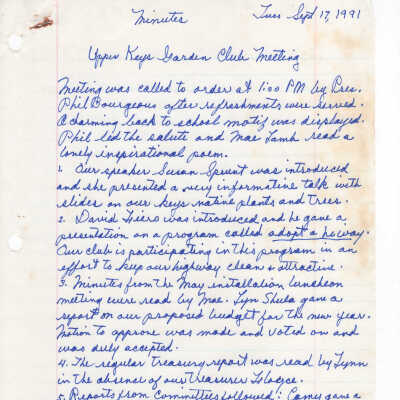 Minutes Tues Sept 17, 1991
Upper Keys Garden Club Meeting
Meeting was called to order at 1:00 PM by Pres.
Phil Bourgeous after refreshments were served.
A charming back to school motif was displayed.
Phil led the salute and Mae Lamb read a
lovely inspirational poem.
1. Our speaker Susan Sprunt was introduced
and she presented a very informative talk with
slides on our keys native plants and trees.
2. David Fiero was introduced and he gave a
presentation on a program called adopt a hiway.
Our club is participating in this program in an
effort to keep our highway clean & attractive.
3. Minutes from the May installation luncheon
meeting were read by Mae. Lyn Shula gave a
report on our proposed budget for the new year.
Motion to approve was made and voted on and
was duly accepted.
4. The regular treasury report was read by Lynn
in the absence of our treasurer
5. Reports from Committees followed: gave a